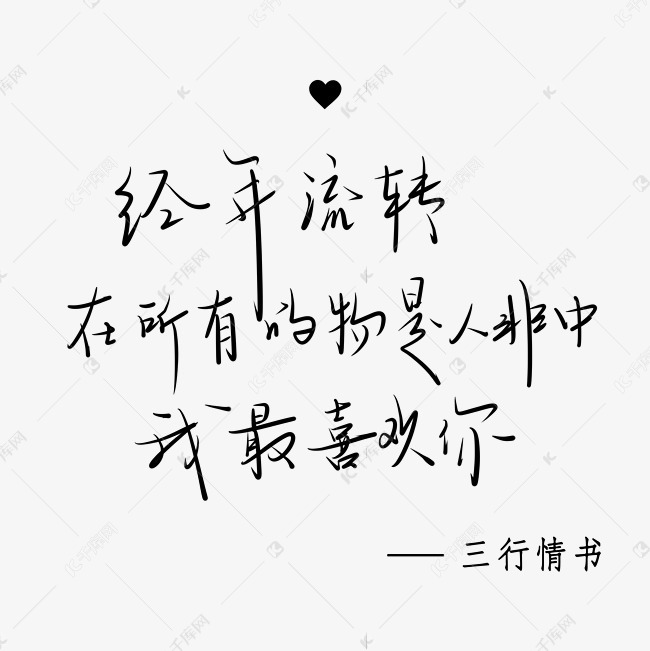 经年流转
在所有的物是人非中
我最喜欢你
—— 三行情书
千库网